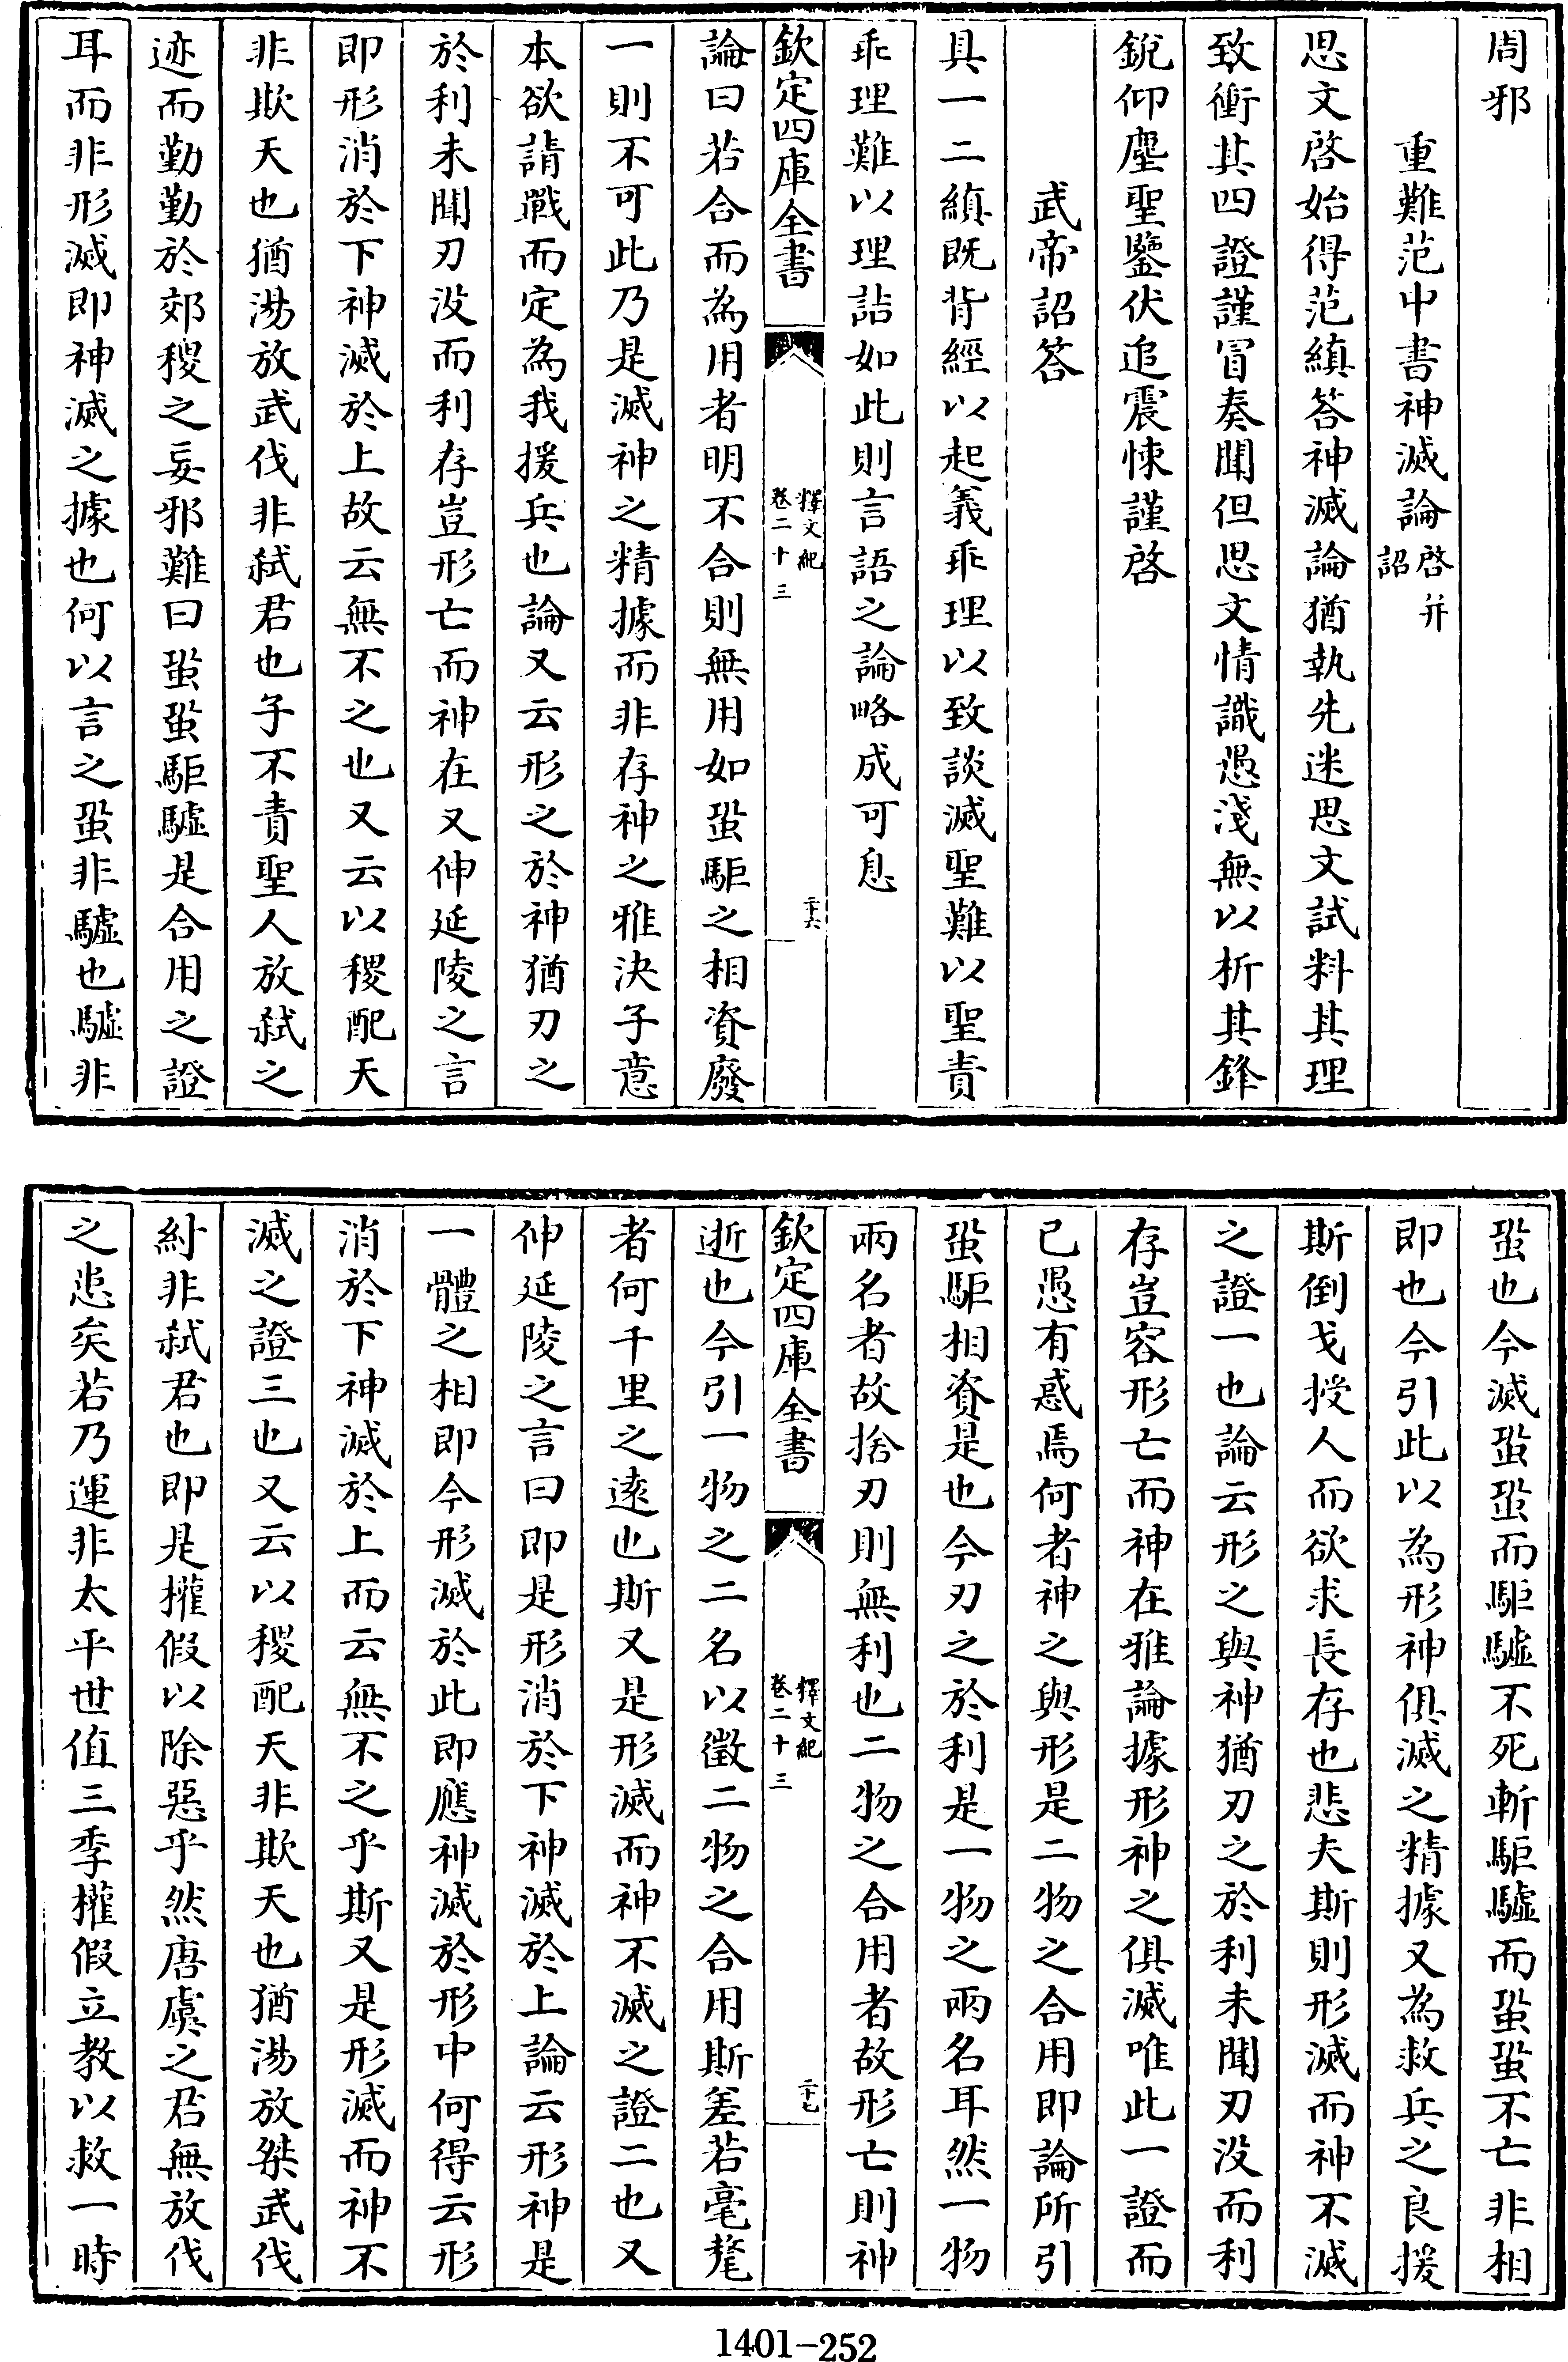 周邪
重難范中書神滅論啓并詔
思文啓始得范縝答神滅論猶執先迷思文試料其理
致衝其四證謹冒奏聞但思文情識愚淺無以折其鋒
銳仰塵聖鑒伏追震悚謹啓
武帝詔答
具一二縝既背經以起義乖理以致談滅聖難以聖責
乖理難以理詰如此則言語之論略成可息
欽定四庫全書
釋文紀
卷二十三
二十六
論曰若合而為用者明不合則無用如蛩駏之相資廢
一則不可此乃是滅神之精據而非存神之雅決子意
本欲請戰而定為我援兵也論又云形之於神猶刃之
於利未聞刃没而利存豈形亡而神在又伸延陵之言
即形消於下神滅於上故云無不之也又云以稷配天
非欺天也猶湯放武伐非弑君也子不責聖人放弑之
迹而勤勤於郊稷之妄邪難曰蛩蛩駏驉是合用之證
耳而非形滅即神滅之據也何以言之蛩非驉也驉非
蛩也今滅蛩蛩而駏驉不死斬駏驉而蛩蛩不亡非相
即也今引此以為形神俱滅之精據又為救兵之良援
斯倒戈授人而欲求長存也悲夫斯則形滅而神不滅
之證一也論云形之與神猶刃之於利未聞刃没而利
存豈容形亡而神在雅論據形神之俱滅唯此一證而
已愚有惑焉何者神之與形是二物之合用即論所引
蛩駏相資是也今刃之於利是一物之兩名耳然一物
兩名者故捨刃則無利也二物之合用者故形亡則神
欽定四庫全書
釋文紀
卷二十三
二十七
逝也今引一物之二名以徵二物之合用斯差若毫氂
者何千里之遠也斯又是形滅而神不滅之證二也又
伸延陵之言曰即是形消於下神滅於上論云形神是
一體之相即今形滅於此即應神滅於形中何得云形
消於下神滅於上而云無不之乎斯又是形滅而神不
滅之證三也又云以稷配天非欺天也猶湯放桀武伐
紂非弑君也即是權假以除惡乎然唐虞之君無放伐
之患矣若乃運非太平世值三季權假立教以救一時
1401-252